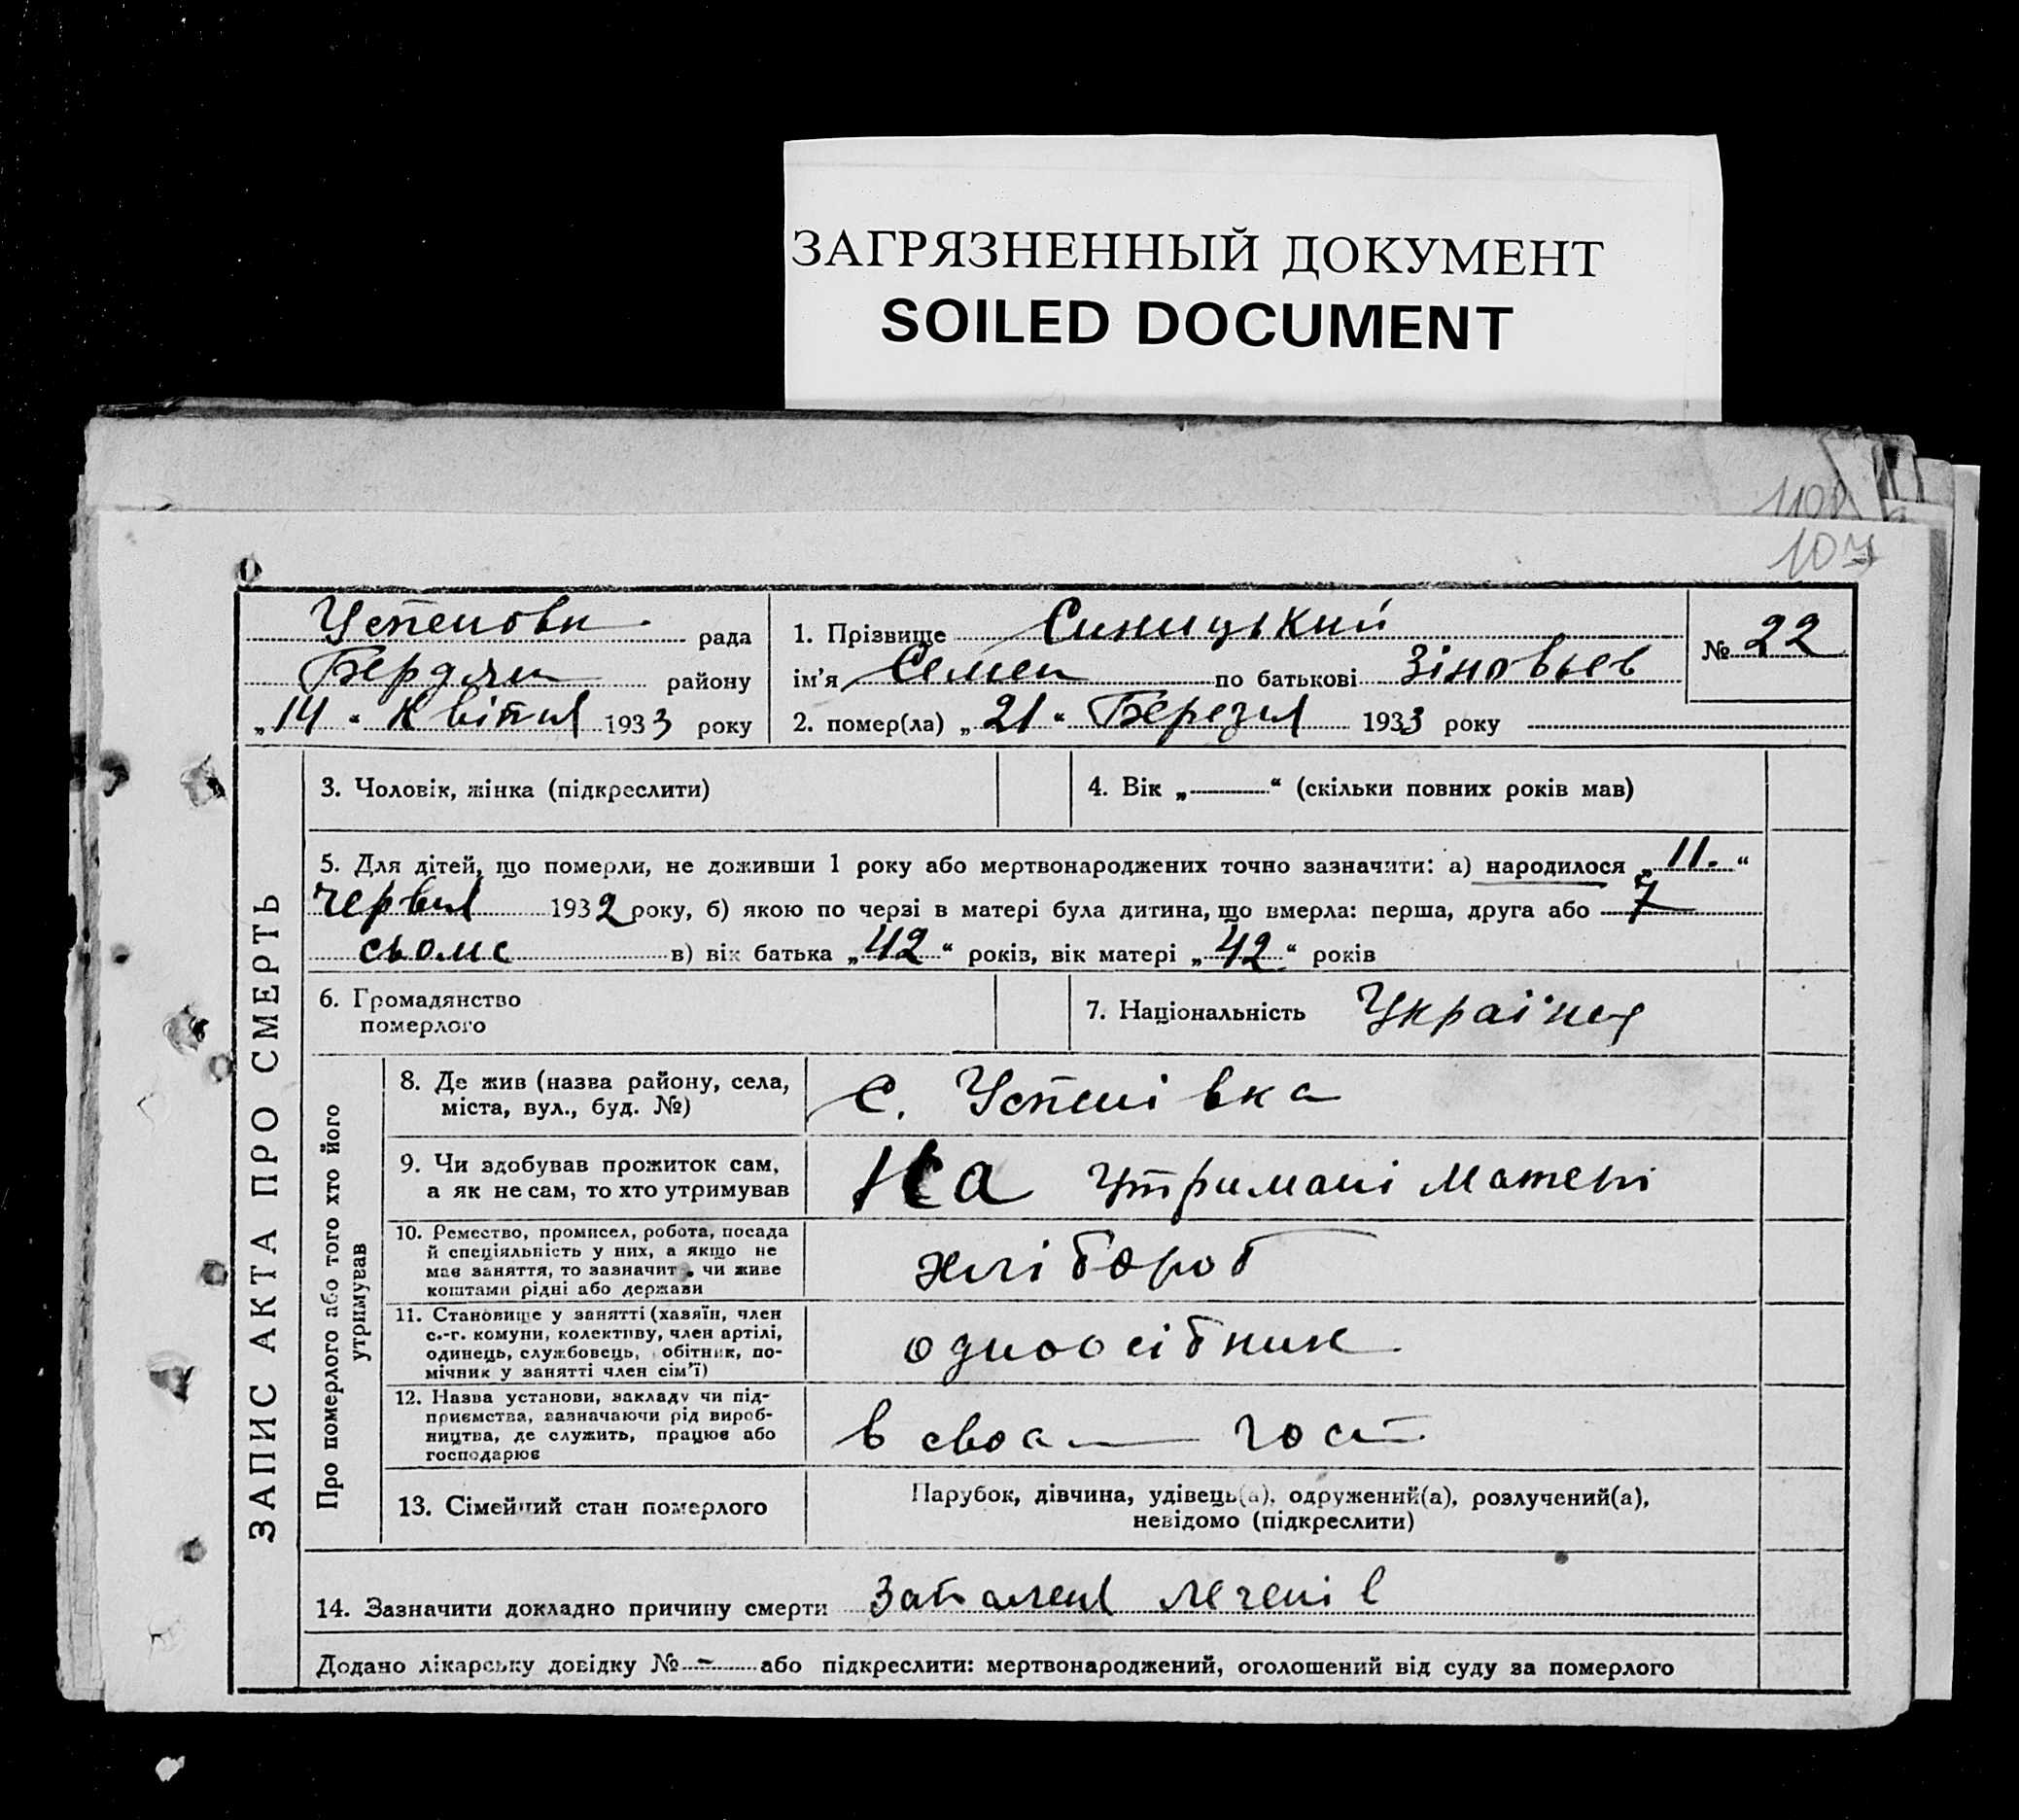 ЗАГРЯЗНЕННЫЙ ДОКУМЕНТ
SOILED DOCUMENT
110
107
Успенови рада
Бердян району
„14" Квітня 1933 року
1. Прізвище Синицький
ім'я Семен по батькові Зіновьев
2. помер(ла) „21" Березня 1933 року
№ 22
ЗАПИС АКТА ПРО СМЕРТЬ
3. Чоловік, жінка (підкреслити)
4. Вік „ " (скільки повних років мав)
5. Для дітей, що померли, не доживши 1 року або мертвонароджених точно зазначити: а) народилося „11."
червня 1932 року, б) якою по черзі в матері була дитина, що вмерла: перша, друга або 7
сьоме в) вік батька „42" років, вік матері „42" років
6. Громадянство
померлого
7. Національність Українец
Про померлого або того хто його
утримував
8. Де жив (назва району, села,
міста, вул., буд. №)
с. Успенівка
9. Чи здобував прожиток сам,
а як не сам, то хто утримував
На утримані матері
10. Ремество, промисел, робота, посада
й спеціяльність у них, а якщо не
має заняття, то зазначит чи живе
коштами рідні або держави
хлібороб
11. Становище у занятті (хазяїн, член
с.-г. комуни, колективу, член артілі,
одинець, службовець, обітник, по-
мічник у занятті член сім'ї)
одноосібник
12. Назва установи, закладу чи під-
приємства, зазначаючи рід вироб-
ництва, де служить, працює або
господарює
в своєм гост
13. Сімейний стан померлого
Парубок, дівчина, удівець(а), одружений(а), розлучений(а),
невідомо (підкреслити)
14. Зазначити докладно причину смерти Запаленя легенів
Додано лікарську довідку № – або підкреслити: мертвонароджений, оголошений від суду за померлого